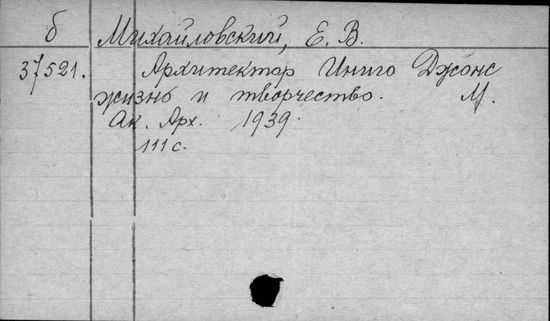 б Михайловский, Е. В.
37521. Архитектор Иниго Джонс
жизнь и творчество. М.
Ак. Арх. 1939.
111 с.